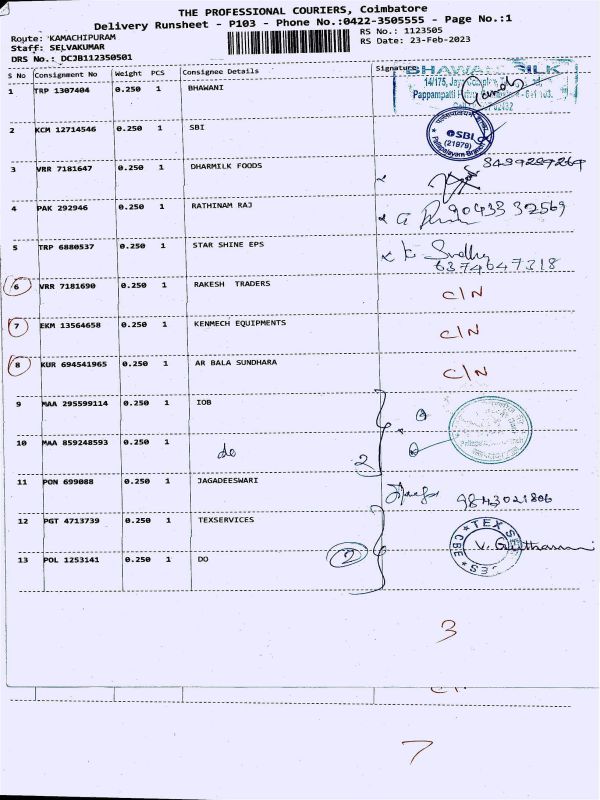 THE PROFESSIONAL COURIERS, Coimbatore
Delivery Runsheet - P103 - Phone No.:0422-3505555 - Page No.:1
Route: KAMACHIPURAM
RS No.: 1123505
Staff: SELVAKUMAR
RS Date: 23-Feb-2023
DRS No.: DCJB112350501
S No Consignment No Weight PCS Consignee Details Signature
1 TRP 1307404 0.250 1 BHAWANI
BHAWANI SILK
14/175,
Pappampatti
2 KCM 12714546 0.250 1 SBI
SBI
(21979)
3 VRR 7181647 0.250 1 DHARMILK FOODS
4 PAK 292946 0.250 1 RATHINAM RAJ 90433 32569
5 TRP 6880537 0.250 1 STAR SHINE EPS
6374647318
6 VRR 7181690 0.250 1 RAKESH TRADERS C/N
7 EKM 13564658 0.250 1 KENMECH EQUIPMENTS C/N
8 KUR 694541965 0.250 1 AR BALA SUNDHARA C/N
9 MAA 295599114 0.250 1 IOB
10 MAA 859248593 0.250 1 do 2
11 PON 699088 0.250 1 JAGADEESWARI 9843021806
12 PGT 4713739 0.250 1 TEXSERVICES
TEX SE
CBE
CES
13 POL 1253141 0.250 1 DO 2
3
C/N
7